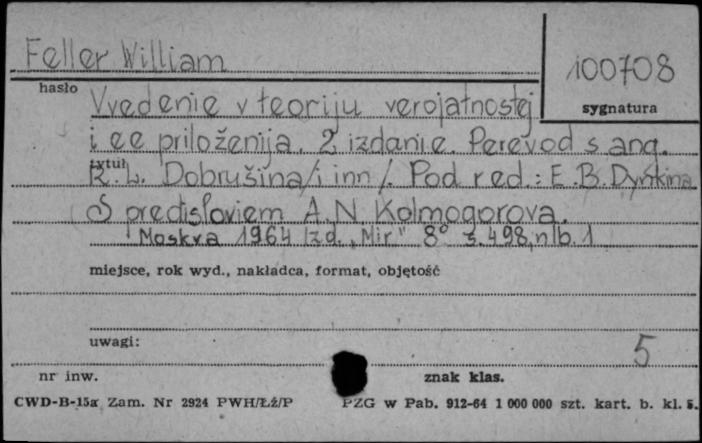 Feller William
100708
hasło
sygnatura
Vvedenie v teoriju verojatnostej
i ee priloženija. 2 izdanie. Perevod s ang.
tytuł
R. L. Dobrušina /i inn/. Pod red.: E. B. Dynkina
S predisloviem A. N. Kolmogorova.
Moskva 1964 Izd. "Mir" 8° s. 498, nlb. 1
miejsce, rok wyd., nakładca, format, objętość
uwagi:
5
nr inw.
znak klas.
CWD-B-15a Zam. Nr 2924 PWH/Łż/P PZG w Pab. 912-64 1 000 000 szt. kart. b. kl. 5.